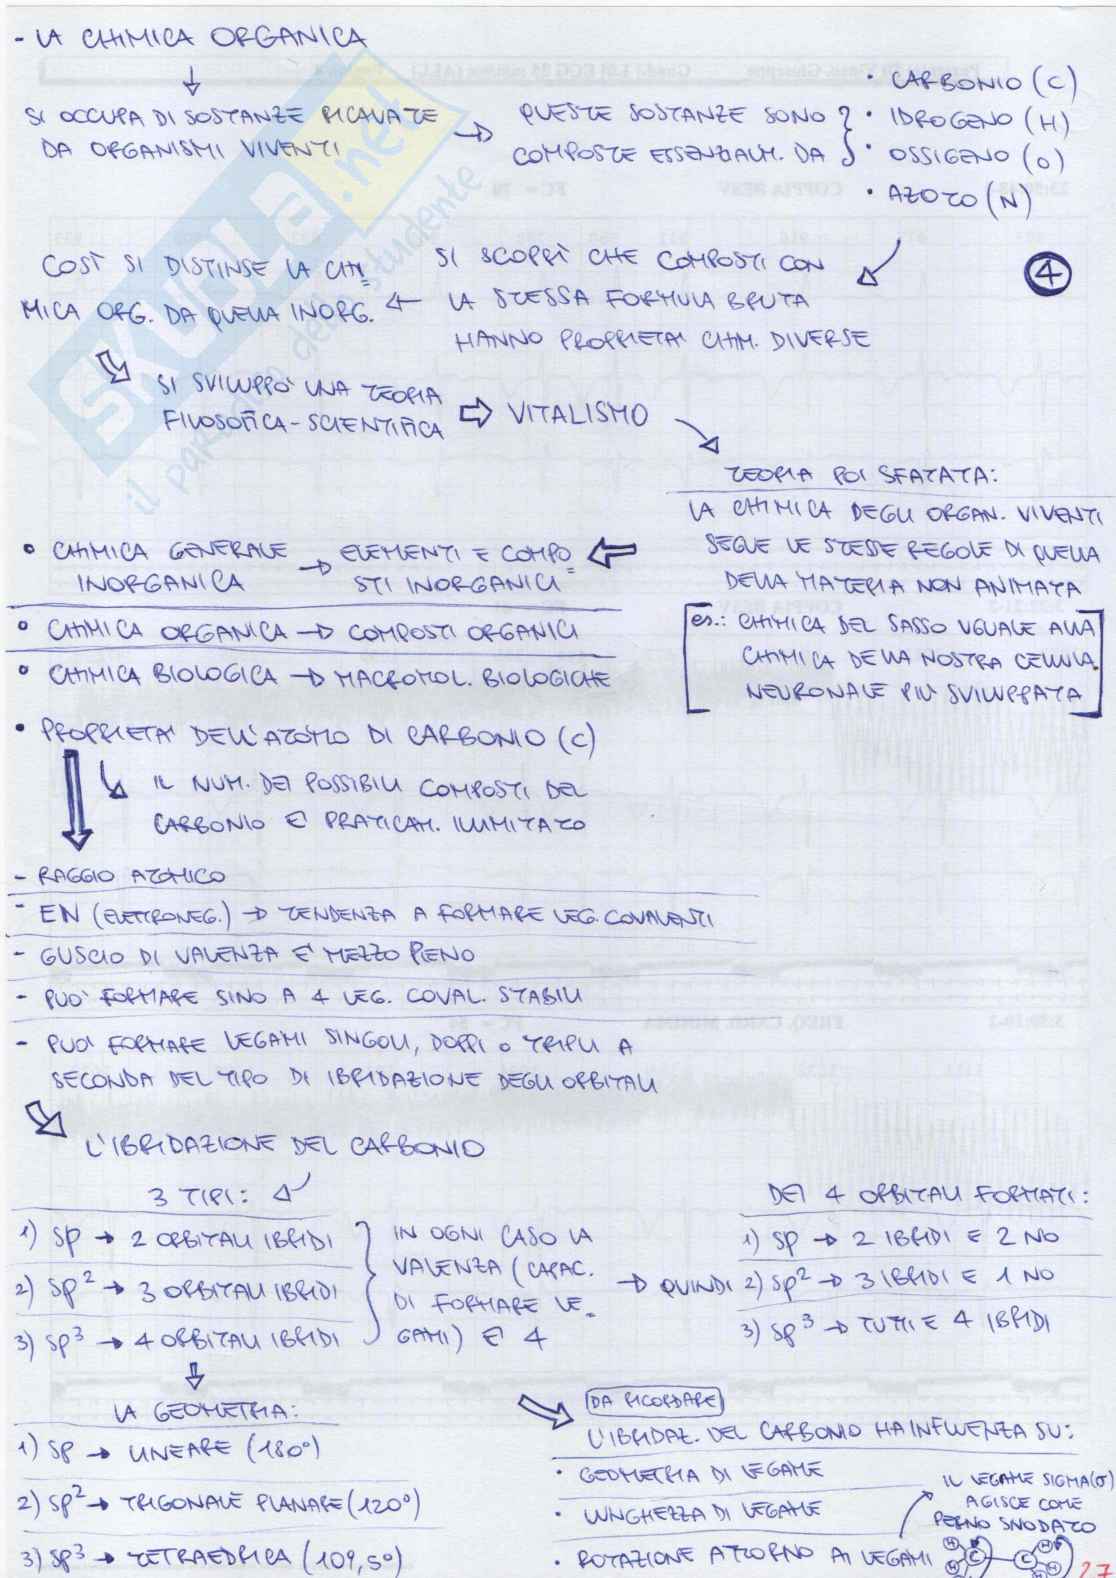 - LA CHIMICA ORGANICA
SI OCCUPA DI SOSTANZE RICAVATE
DA ORGANISMI VIVENTI
QUESTE SOSTANZE SONO
COMPOSTE ESSENZIALM. DA
• CARBONIO (C)
• IDROGENO (H)
• OSSIGENO (O)
• AZOTO (N)
SI SCOPRÌ CHE COMPOSTI CON
LA STESSA FORMULA BRUTA
HANNO PROPRIETA' CHIM. DIVERSE
4
COSÌ SI DISTINSE LA CHI=
MICA ORG. DA QUELLA INORG.
SI SVILUPPO' UNA TEORIA
FILOSOFICA-SCIENTIFICA
VITALISMO
TEORIA POI SFATATA:
LA CHIMICA DEGLI ORGAN. VIVENTI
SEGUE LE STESSE REGOLE DI QUELLA
DELLA MATERIA NON ANIMATA
es.: CHIMICA DEL SASSO UGUALE ALLA
CHIMICA DELLA NOSTRA CELLULA
NEURONALE PIU' SVILUPPATA
• CHIMICA GENERALE → ELEMENTI E COMPO=
INORGANICA STI INORGANICI
• CHIMICA ORGANICA → COMPOSTI ORGANICI
• CHIMICA BIOLOGICA → MACROMOL. BIOLOGICHE
• PROPRIETA' DELL'ATOMO DI CARBONIO (C)
IL NUM. DEI POSSIBILI COMPOSTI DEL
CARBONIO E' PRATICAM. ILLIMITATO
- RAGGIO ATOMICO
- EN (ELETTRONEG.) → TENDENZA A FORMARE LEG. COVALENTI
- GUSCIO DI VALENZA E' MEZZO PIENO
- PUO' FORMARE SINO A 4 LEG. COVAL. STABILI
- PUOI FORMARE LEGAMI SINGOLI, DOPPI O TRIPLI A
SECONDA DEL TIPO DI IBRIDAZIONE DEGLI ORBITALI
L'IBRIDAZIONE DEL CARBONIO
3 TIPI:
1) sp → 2 ORBITALI IBRIDI
2) sp² → 3 ORBITALI IBRIDI
3) sp³ → 4 ORBITALI IBRIDI
IN OGNI CASO LA
VALENZA (CAPAC.
DI FORMARE LE=
GAMI) E' 4
→ QUINDI
DEI 4 ORBITALI FORMATI:
1) sp → 2 IBRIDI E 2 NO
2) sp² → 3 IBRIDI E 1 NO
3) sp³ → TUTTI E 4 IBRIDI
LA GEOMETRIA:
1) sp → LINEARE (180°)
2) sp² → TRIGONALE PLANARE (120°)
3) sp³ → TETRAEDRICA (109,5°)
DA RICORDARE
L'IBRIDAZ. DEL CARBONIO HA INFLUENZA SU:
• GEOMETRIA DI LEGAME
• LUNGHEZZA DI LEGAME
• ROTAZIONE ATTORNO AI LEGAMI
IL LEGAME SIGMA(σ)
AGISCE COME
PERNO SNODATO
H H
H C C H
27
SKUOLA.net
il paradiso dello studente